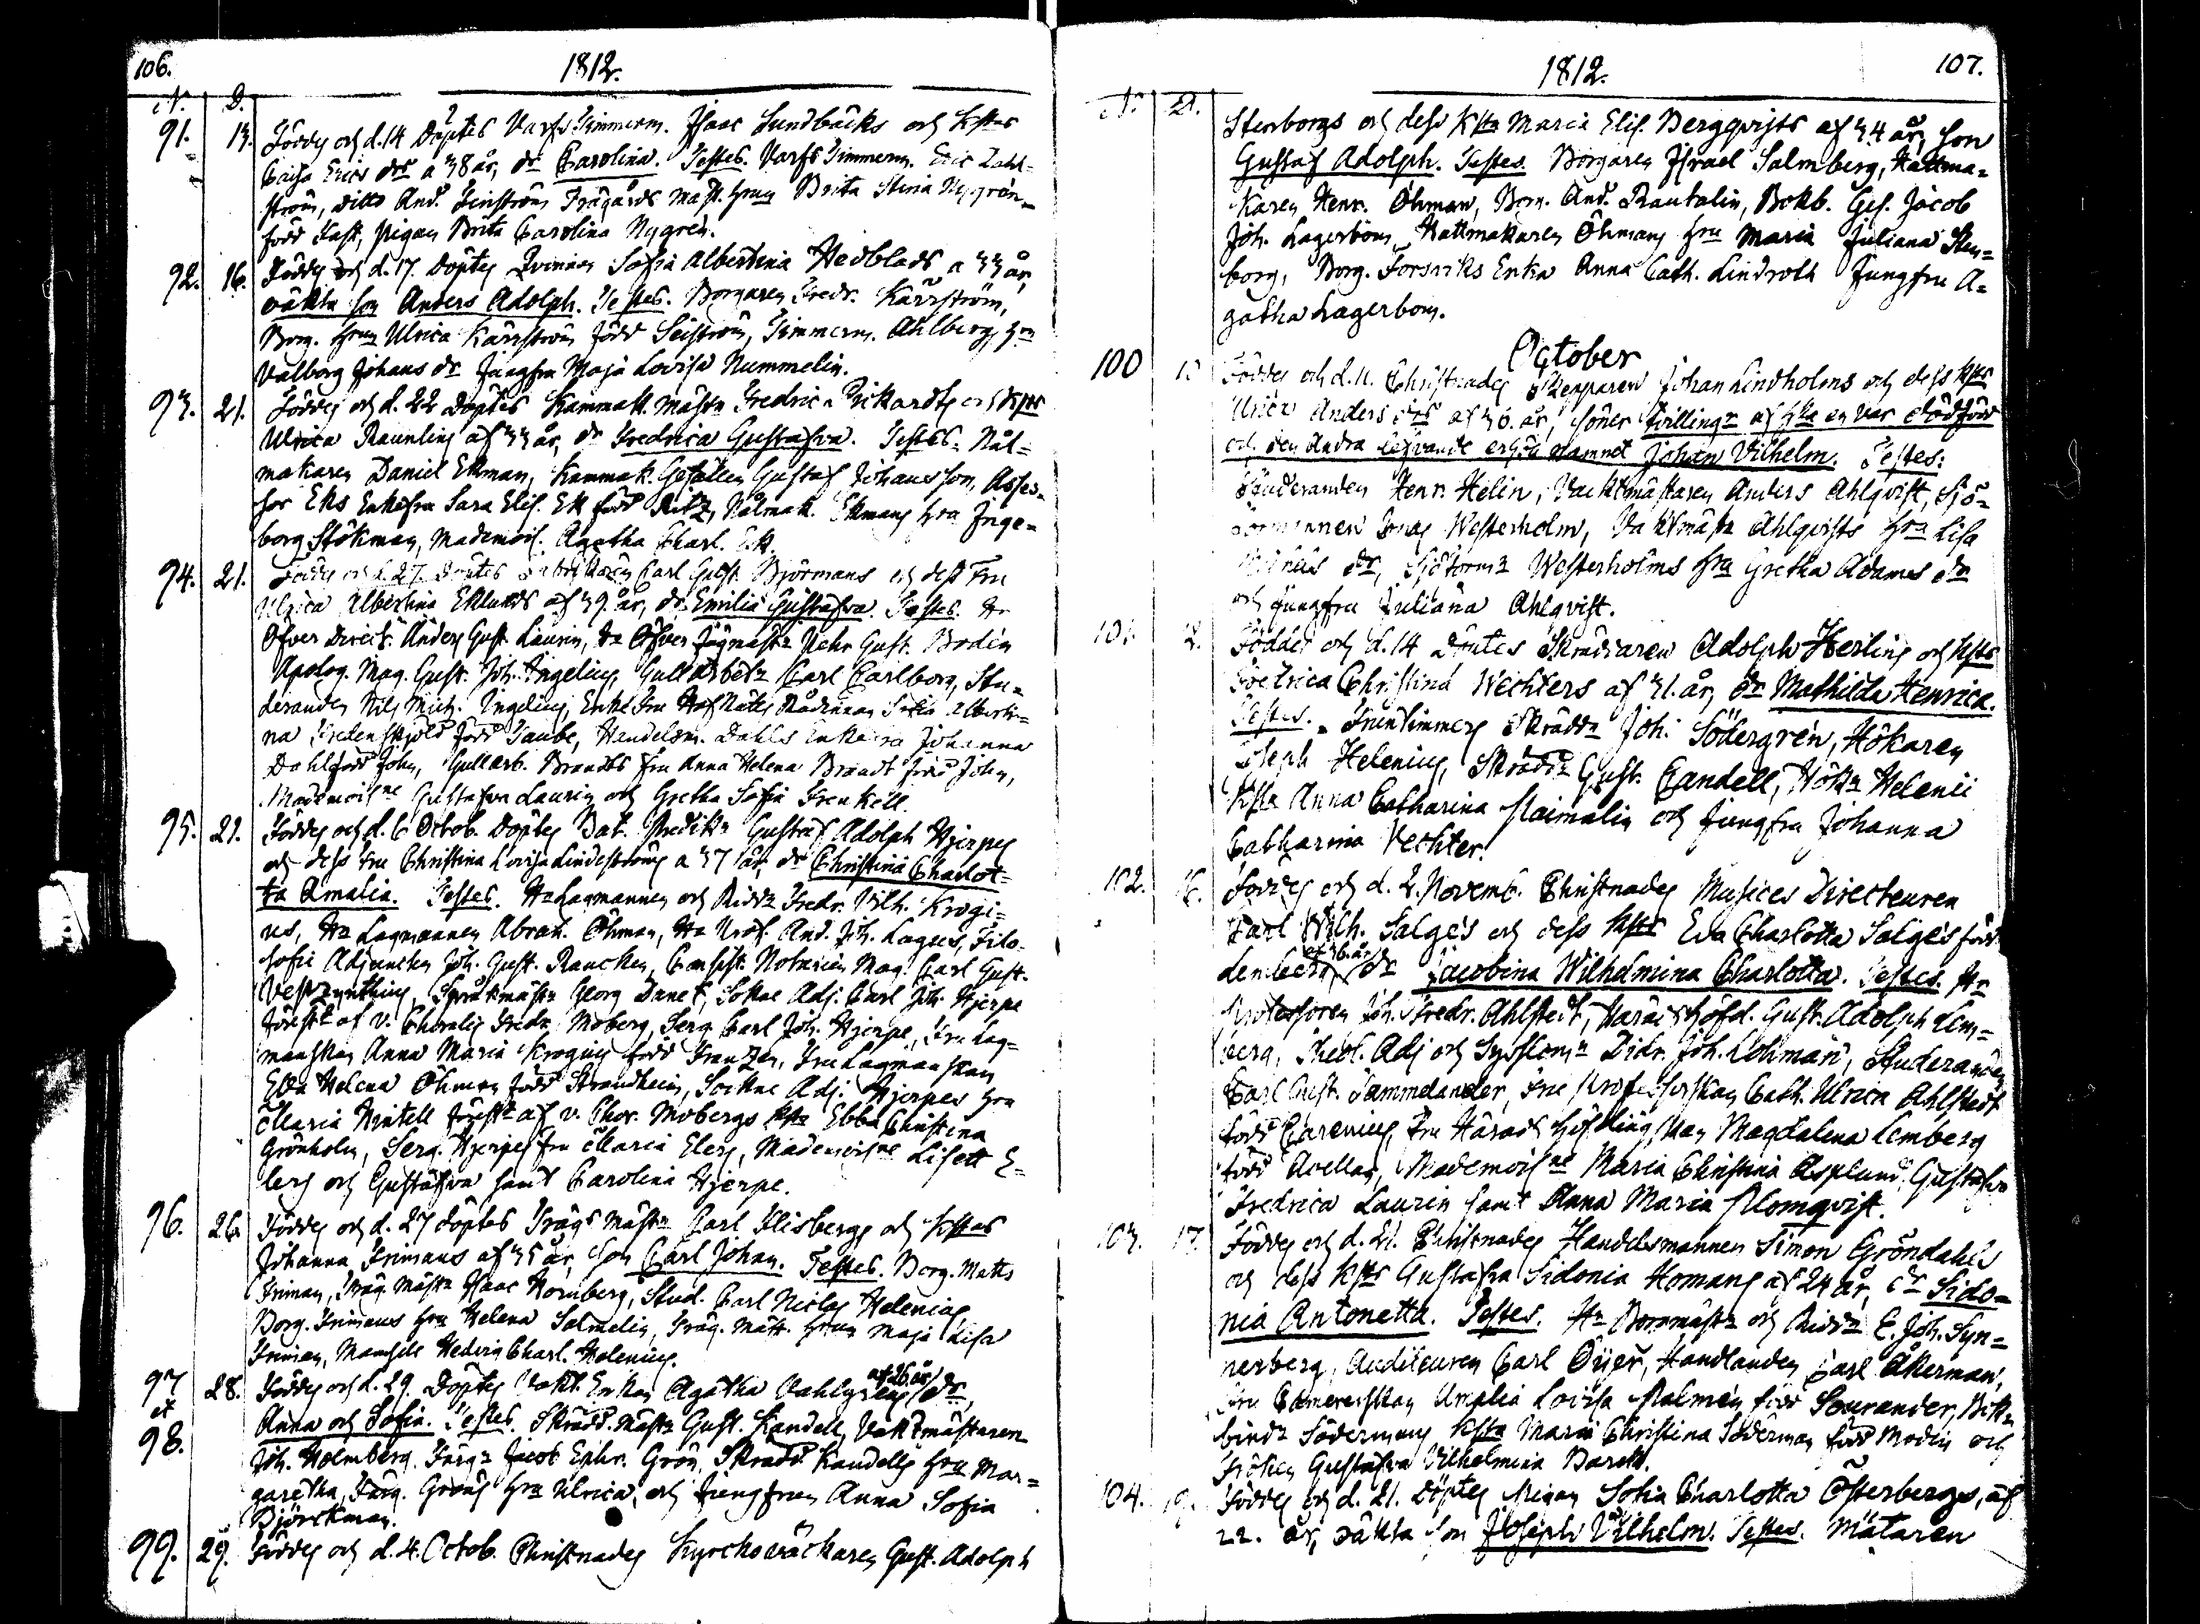 106.
1812.
N. D.
91. 13. Föddes och d. 14 Döptes Varfs Timmerm. Isaac Sundbäcks och Hstrs
Caisa Erics drs a 38 år, dr Carolina. Testes. Varfs Timmerm. Eric Zahl-
ström, ditto And. Finström Trägårds mäst. hru Brita Stina Nygrén
född Fast, pigan Brita Carolina Nygrén.
92. 16. Föddes och d. 17. Döptes Qvinnan Sofia Albertina Hedblads a 33 år,
oäkta son Anders Adolph. Testes. Borgaren Fredr. Kärrström,
Borg. hru Ulrica Kärrström född Seström, Timmerm. Ahlberg, hru
Valborg Johans dr Jungfru Maja Lovisa Nummelin.
93. 21. Föddes och d. 22 Döptes Kammak. mästr Fredric Rickardts och Hstrs
Ulrica Raunlins af 33 år, dr Fredrica Gustafva. Testes. Nål-
makaren Daniel Ekman, Kammak. Gesällen Gustaf Johansson, Asses-
sor Eks Enkefru Sara Elis. Ek född Ritz, Nålmak. Ekmans hru Inge-
borg Stökman, Mademois. Agatha Charl. Ek.
94. 21. Föddes och d. 27. Döptes Carl Gust. Björmans och dess Fru
Ulrica Albertina Eklunds af 39. år, dr Emilia Gustafva. Testes. Hr
Öfver Direct. Anders Gust. Laurin, Hr Öfver Jägmästr Pehr Gust. Bodén
Apolog. Mag. Gust. Joh. Ingelius, Gullarbetr Carl Carlborg, Stu-
deranden Nils Mich. Ingelius, Enke Fru Hof Rätts Rådinnan Sofia Alberti-
na Fredenskjöld född Taube, Handelsm. Dahls Enka Johanna
Dahl född John, Gullarb. Brandts Fru Anna Helena Brandt född John,
Mademoislne Gustafva Laurin och Gretha Sofia Frenkell.
95. 21. Föddes och d. 6 Octob. Döptes Bat. Predikn Gustaf Adolph Hjerpes
och dess Fru Christina Lovisa Lindeströms a 37 år, dr Christina Charlot-
ta Amalia. Testes. Hr Lagmannen och Riddr Fredr. Vilh. Krogi-
us, Hr Lagmannen Abrah. Öhman, Hr Prof. And. Joh. Lagus, Filo-
sofie Adjuncten Joh. Gust. Rancken, Consist. Notarien Mag. Carl Gust.
Veszynthius, Språkmästr Georg Danet, Sokne Adj. Carl Joh. Hjerpe
Förestr af v. Choralis Fredr. Moberg, Serg. Carl Joh. Hjerpe, Fru Lag-
manskan Anna Maria Krogius född Franzén, Fru Lagmanskan
Eva Helena Öhman född Strandheim, Sockne Adj. Hjerpes hru
Maria Wintell förestr af v. Chor. Mobergs hru Ebba Christina
Grönholm, Serg. Hjerpes Fru Maria Elers, Mademoislne Lisett E-
lers och Gustafva samt Carolina Hjerpe.
96. 26. Föddes och d. 27 döptes Trägs Mästr Carl Flisbergs och Hstrs
Johanna Frimans af 35 år, son Carl Johan. Testes. Borg. Matts
Friman, Träg. Mästr Isaac Hornberg, Stud. Carl Niclas Helenius
Borg. Frimans hru Helena Salmelin, Träg. Mäst. hrus Maja Lisa
Friman, Mamsell Hedvig Charl. Helenius.
97 et 98. 28. Föddes och d. 29. Döptes Vakt. Enkan Agatha Vahlgrens af 26 år dr,
Anna och Sofia. Testes. Skrädd. Mästr Gust. Kandell, Vaktmästaren
Joh. Holmberg. Färgr Jacob Ephr. Grön, Skrädd. Kandells hru Mar-
garetha, Färg. Gröns hru Ulrica, och Jungfrun Anna Sofia
Björckman.
99. 29. Föddes och d. 4. Octob. Christnades Kyrckoväckaren Gust. Adolph
1812.
107.
N. D.
Stenborgs och dess Hstr Maria Elis. Bergqvists af 34 år, son
Gustaf Adolph. Testes. Borgaren Israel Salmberg, Hattma-
karen Henr. Öhman, Born. And. Rautalin, Bokb. Ges. Jacob
Joh. Lagerbom, Hattmakaren Öhmans hru Maria Juliana Sten-
borg, Borg. Forsviks Enka Anna Cath. Lindroth Jungfru A-
gatha Lagerbom.
October
100 10 Föddes och d. 11. Christnades Skepparen Johan Lindholms och dess Hstrs
Ulrica Anders drs af 36. år, söner tvillingr af hvilka en var dödfödd
och den andra lefvande erhöll namnet Johan Vilhelm. Testes:
Studeranden Henr. Helin, Vacktmästaren Anders Ahlqvist, Sjö-
tormannen Jonas Westerholm, Vaktmästr Ahlqvists hru Lisa
dr, Sjötormr Westerholms hru Gretha Adams dr
och Jungfru Juliana Ahlqvist.
101. 12. Föddes och d. 14 Döptes Skräddaren Adolph Herlins och Hstrs
Fredrica Christina Wechters af 31. år, dr Mathilda Henrica.
Testes. Fruntimmers Skräddr Joh. Södergrén, Hökaren
Steph Helenius, Skräddr Gust. Candell, Hökr Helenii
Hstr Anna Catharina Maimalin och Jungfru Johanna
Catharina Vechter.
102. 16. Föddes och d. 2. Novemb. Christnades Musices Directeuren
Carl Wilh. Salgés och dess Hstrs Eva Charlotta Salgés född
demberg af 36 år dr Jacobina Wilhelmina Charlotta. Testes. Hr
Professoren Joh. Fredr. Ahlstedt, Häradshöfd. Gust. Adolph Lem-
berg, Theol. Adj och Sysslomn Didr. Joh. Lohman, Studeranden
Carl Gust. Tammelander, Fru Professorskan Cath. Ulrica Ahlstedt
född Carenius, Fru Häradshöfdingskan Magdalena Lemberg
född Avellan, Mademoislne Maria Christina Asplund, Gustafva
Fredrica Laurin samt Anna Maria Blomqvist.
103. 17. Föddes och d. 21. Christnades Handelsmannen Simon Gröndahls
och dess Hstrs Gustafva Sidonia Homans af 24 år, dr Sido-
nia Antonetta. Testes. Hr Borgmästr och Riddr E. Joh. Syn-
nerberg, Auditeuren Carl Öijer, Handlanden Carl Åkerman,
Fru Camererskan Amalia Lovisa Malmén född Sourander, Bok-
bindr Södermans Hstr Maria Christina Söderman född Modin och
Fröken Gustafva Vilhelmina Barck.
104. 19. Föddes och d. 21. Döptes Pigan Sofia Charlotta Österbergs, af
22. år, oäkta son Joseph Vilhelm. Testes. Mätaren